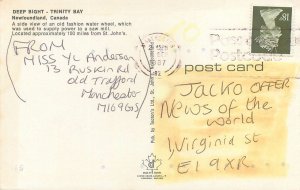 DEEP BIGHT - TRINITY BAY
Newfoundland, Canada
A side view of an old fashion water wheel, which
was used to supply power to a saw mill.
Located approximately 100 miles from St. John's.
FROM
MISS Y L Anderson
13 Ruskin Rd
Old Trafford
Manchester
M16 9GS
post card
JACKO OFFER
NEWS OF the
World
1 Virginia st
E1 9XR